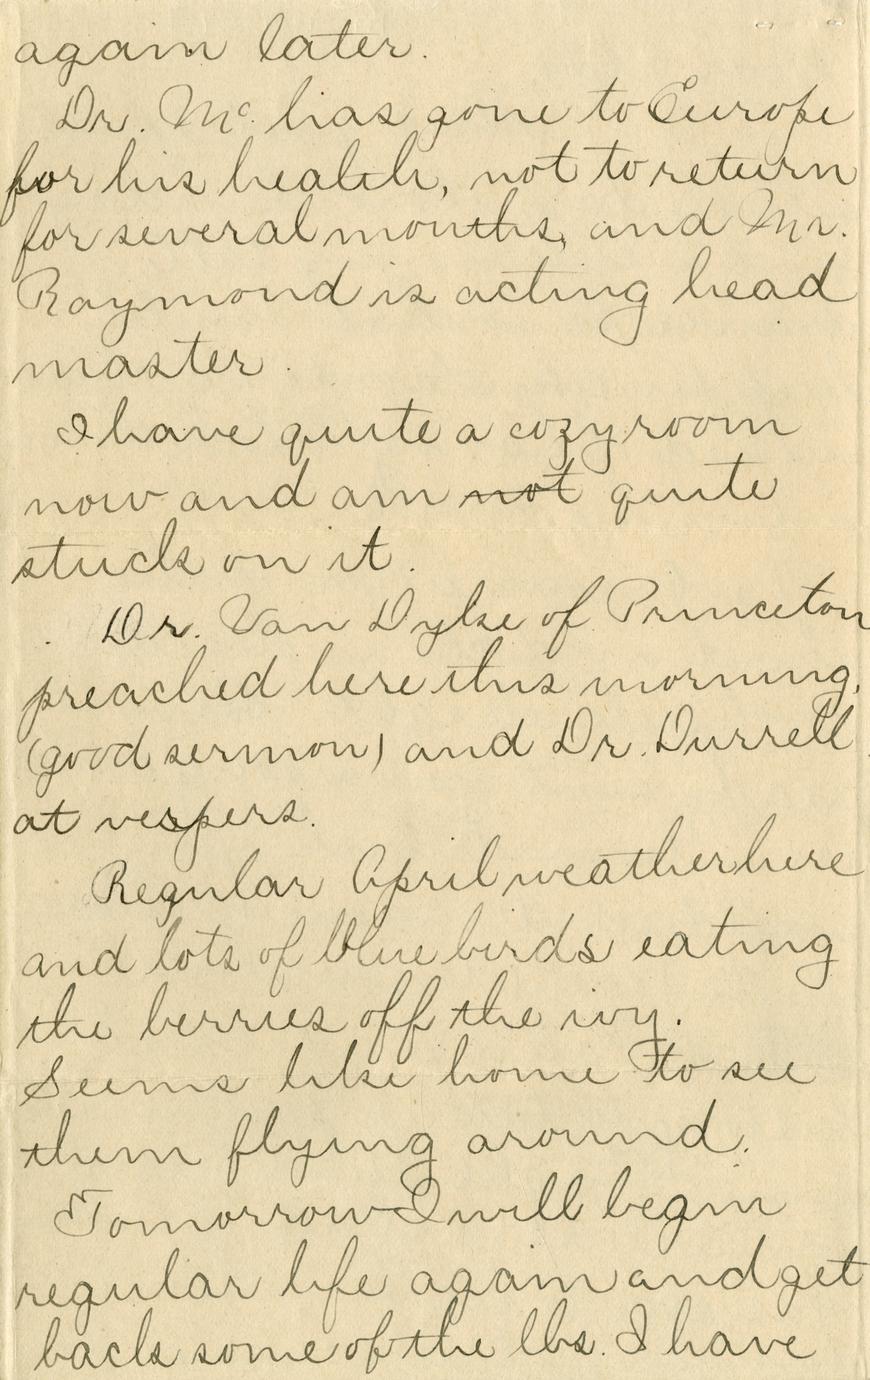 again later.
Dr. Mc. has gone to Europe
for his health, not to return
for several months, and Mr.
Raymond is acting head
master.
I have quite a cozy room
now and am not quite
stuck on it.
Dr. Van Dyke of Princeton
preached here this morning,
(good sermon) and Dr. Durrell
at vespers.
Regular April weather here
and lots of blue birds eating
the berries off the ivy.
Seems like home to see
them flying around.
Tomorrow I will begin
regular life again and get
back some of the lbs. I have